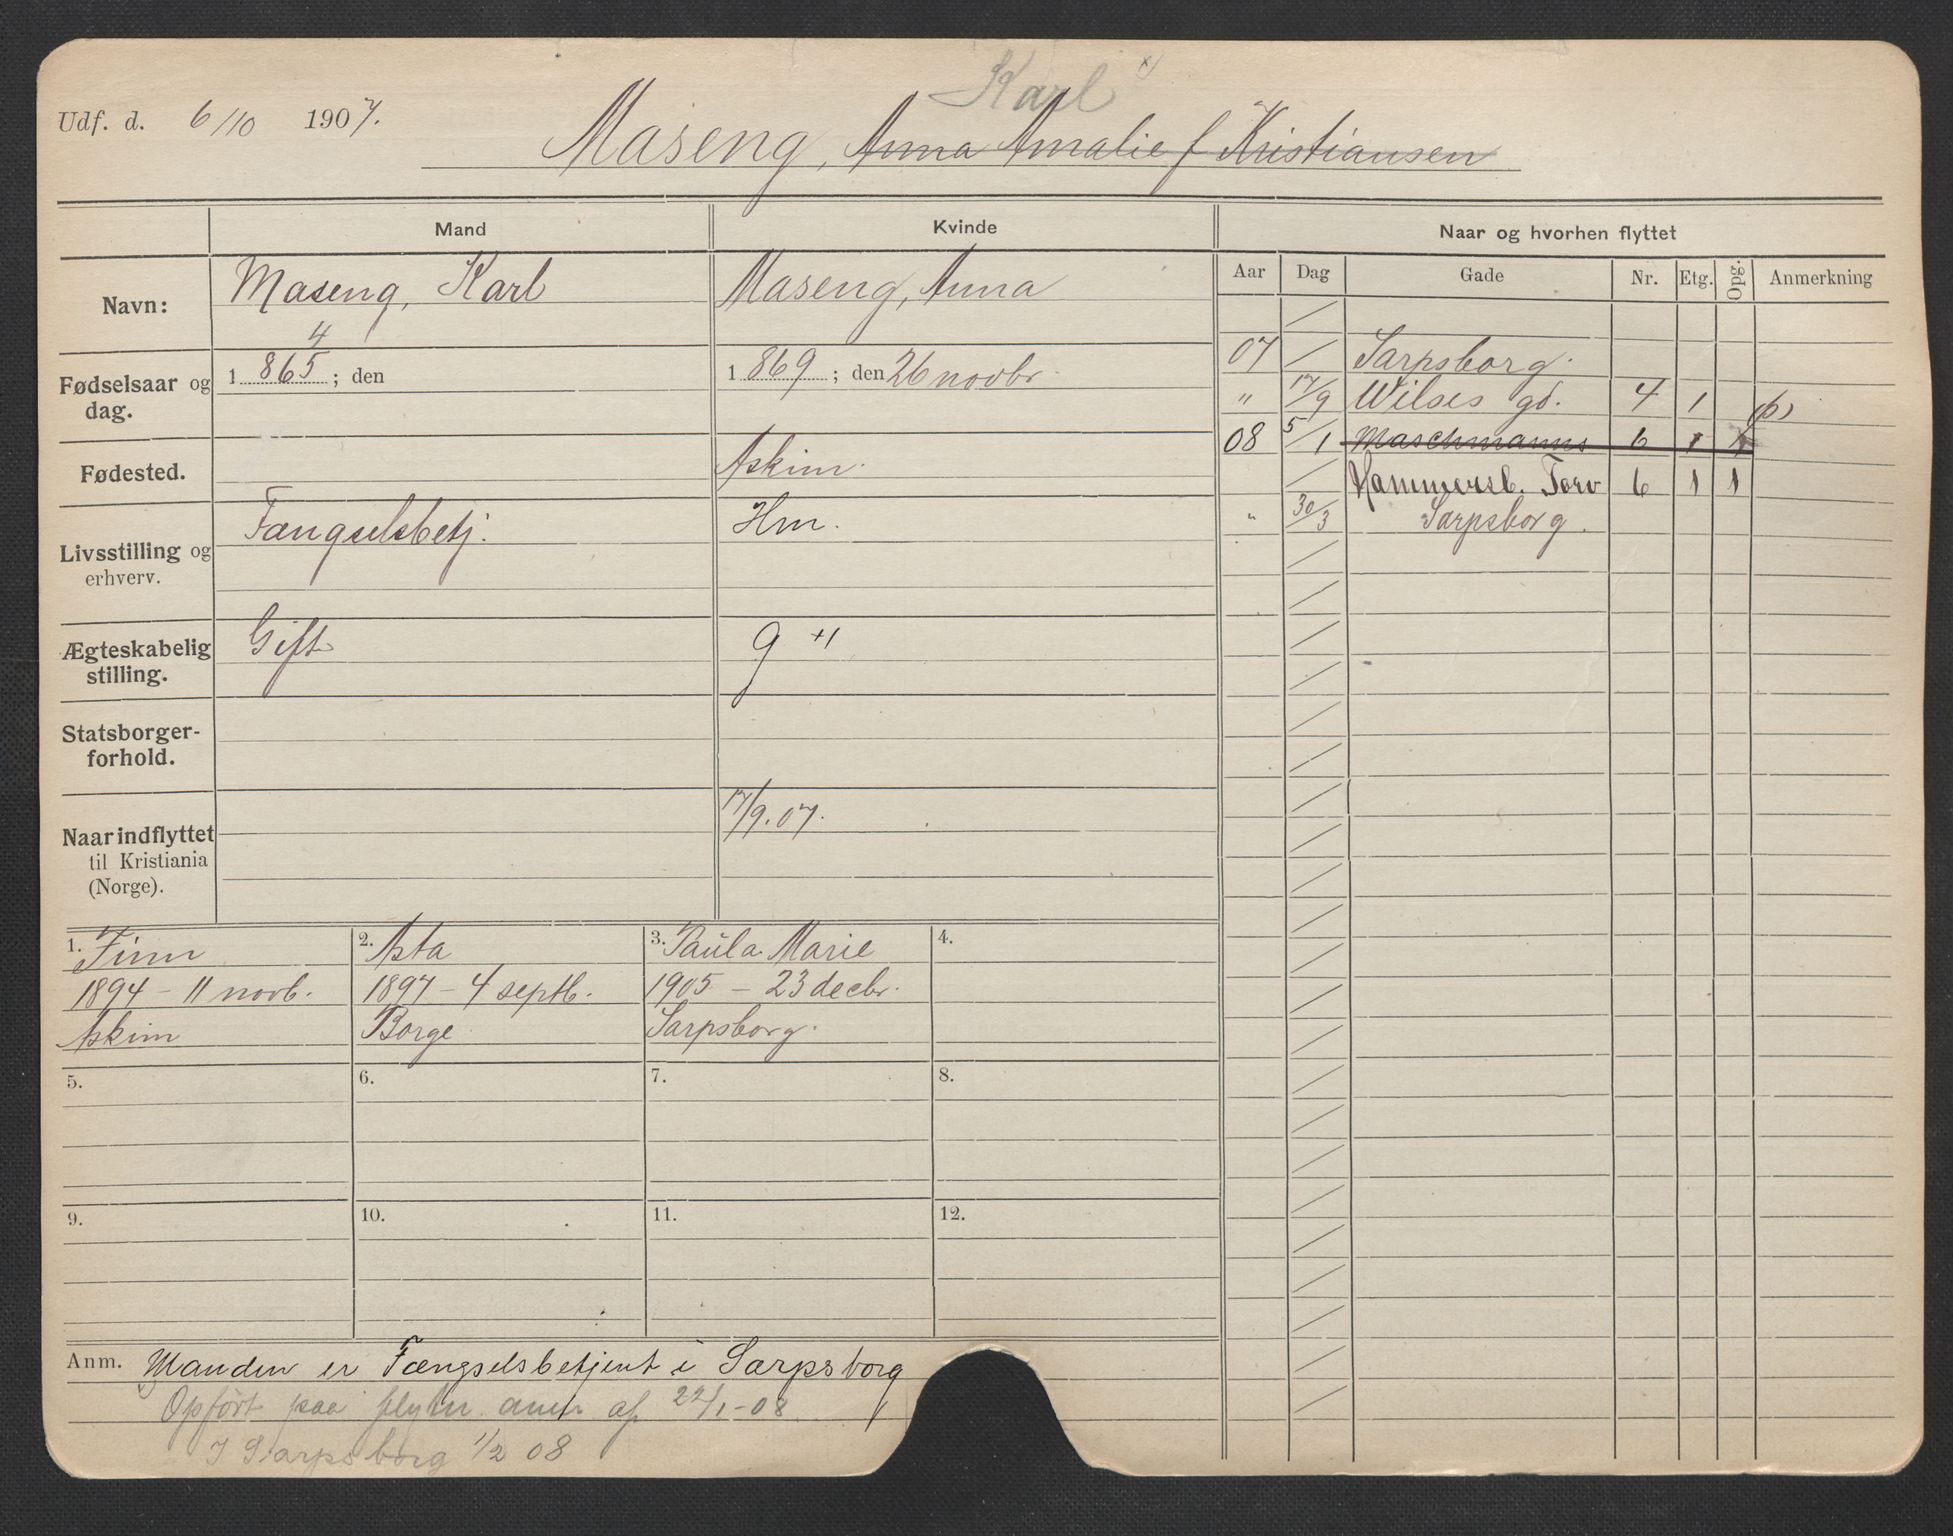 Karl
Udf. d. 6/10 1907.
Maseng, Anna Amalie f Kristiansen
Mand Kvinde Naar og hvorhen flyttet
Aar Dag Gade Nr. Etg. Opg. Anmerkning
Navn: Maseng, Karl Maseng, Anna
4
07 Sarpsborg.
Fødselsaar og dag. 1 865 ; den 1 869 ; den 26 novbr.
" 17/9 Wilses gd. 4 1
(b)
08 5/1 Maschmanns 6 1 1
Fødested. Askim.
Hammersb. Torv 6 1 1
" 30/3 Sarpsborg.
Livsstilling og erhverv. Fængselsbetj. Hm.
Ægteskabelig stilling. Gift g +1
Statsborger-
forhold.
Naar indflyttet
til Kristiania
(Norge).
17/9.07.
1. Finn
1894 - 11 novb.
Askim
2. Asta
1897 - 4 septb.
Borge
3. Paula Marie
1905 - 23 decbr.
Sarpsborg.
4.
5. 6. 7. 8.
9. 10. 11. 12.
Anm. Manden er Fængselsbetjent i Sarpsborg
Opført paa flytn. anm af 22/1-08
I Sarpsborg 1/2 08